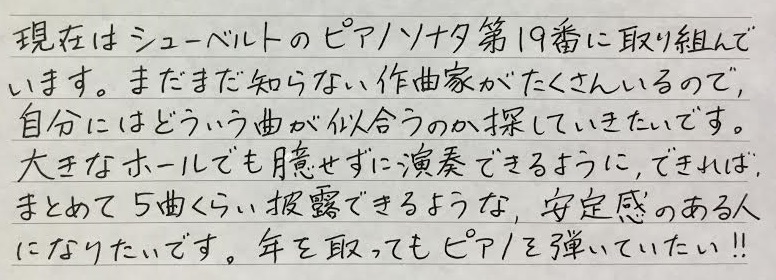 現在はシューベルトのピアノソナタ第19番に取り組んで
います。まだまだ知らない作曲家がたくさんいるので,
自分にはどういう曲が似合うのか探していきたいです。
大きなホールでも臆せずに演奏できるように,できれば,
まとめて5曲くらい披露できるような,安定感のある人
になりたいです。年を取ってもピアノを弾いていたい!!